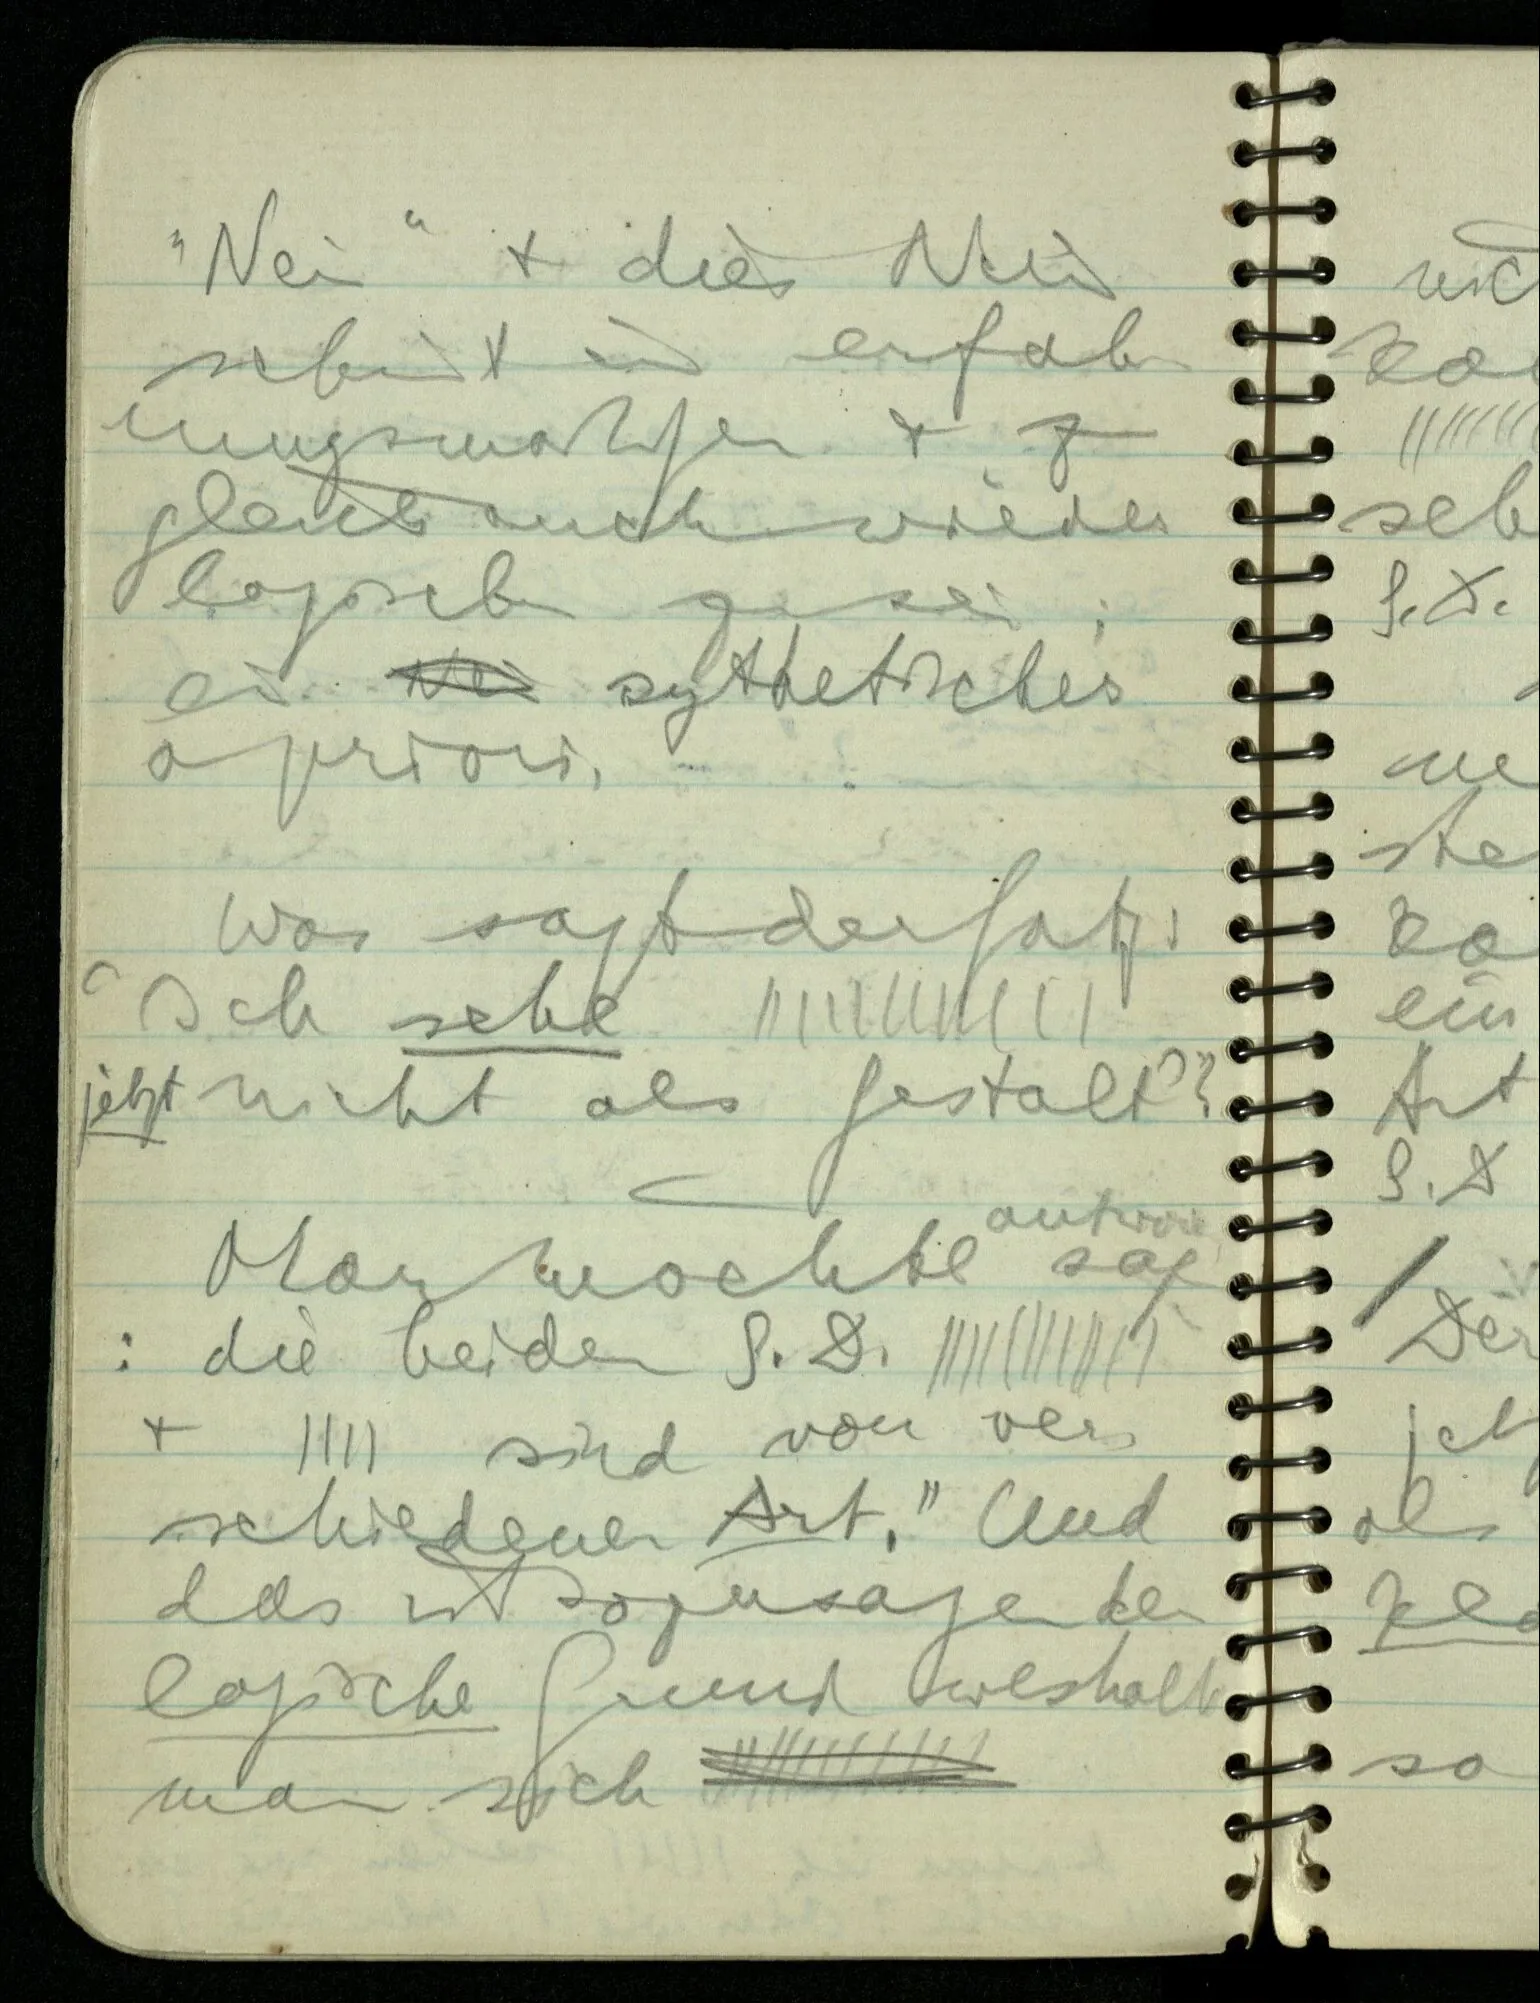 "Nein" + dies Nein
scheint ein erfah
rungsmäßiger + z
gleich auch wieder
logischer zu sein;
ein Nein sythetisches
a priori.
Was sagt der Satz:
"Ich sehe ||||||||||||
jetzt nicht als Gestalt"?
antwor
Man möchte sag
: die beiden G.D. ||||||||||||
+ |||| sind von ver
schiedener Art." Und
das ist sozusagen der
logische Grund weshalb
man sich ||||||||||||
nich
ka
||||||||
seh
G.D.
me
ste
ka
ein
Art
G.D
/
Der
jet
als
so